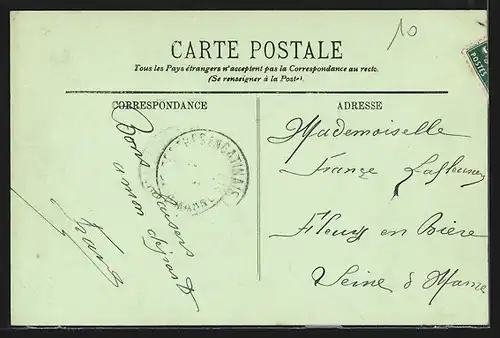 10
CARTE POSTALE
Tous les Pays étrangers n'acceptent pas la Correspondance au recto.
(Se renseigner à la Poste).
POSTES
CORRESPONDANCE
Bons baisers
a mon départ
ADRESSE
Mademoiselle
France
Fleury en Bière
Seine & Marne